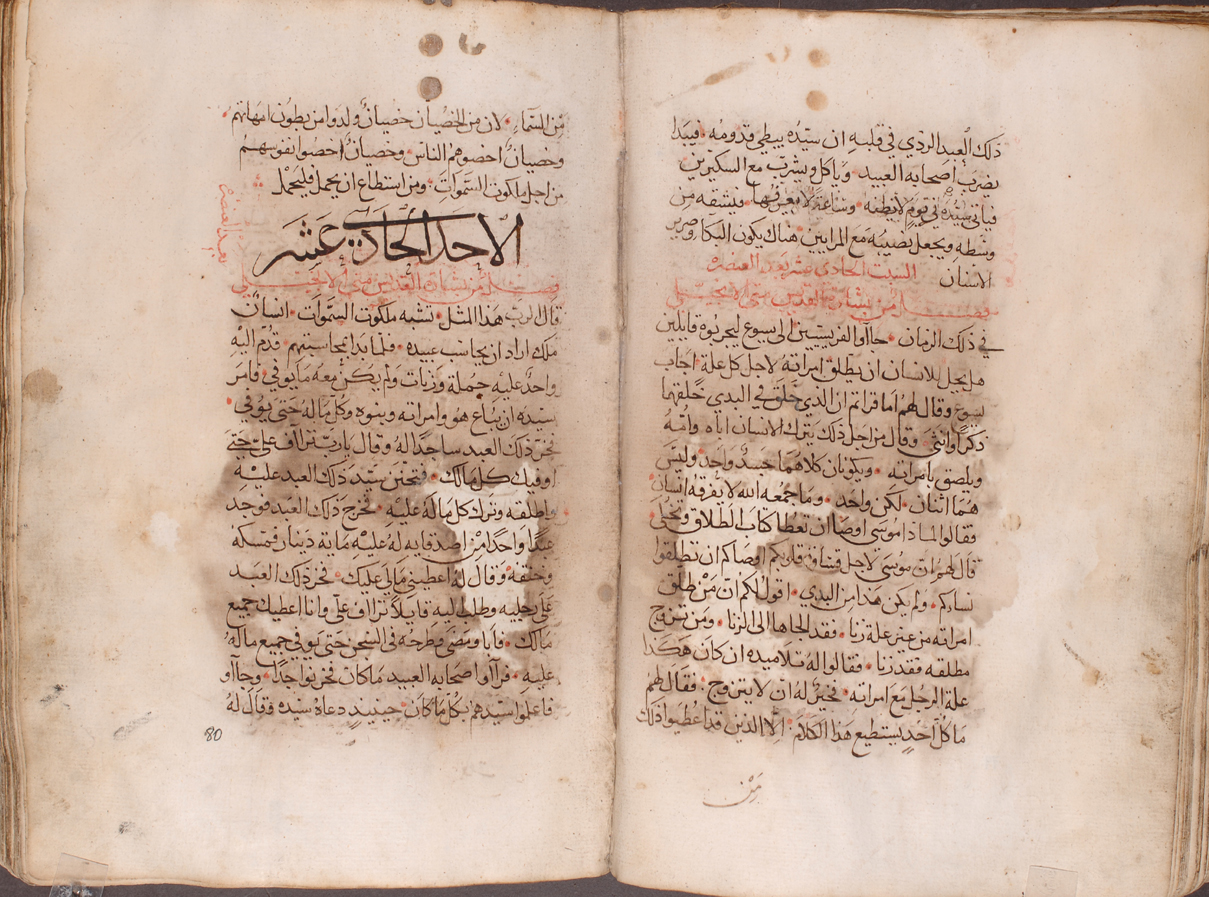 ذلك العبد الردي في قلبه ان سيده يبطي قدومه فيبدا
يضرب اصحابه العبيد وياكل ويشرب مع السكيرين
فياتي سيده في يوم لا يظنه وساعة لا يعرفها فيشقه من
وسطه ويجعل نصيبه مع المرايين هناك يكون البكا وصرير
الاسنان السبت الحادي عشر بعد العنصره
فصل من بشارة القديس متى الانجيلي
في ذلك الزمان جااوا الفريسيين الى يسوع ليجربوه قايلين
هل يحل للانسان ان يطلق امراته لاجل كل علة اجاب
يسوع وقال لهم اما قراتم ان الذي خلق في البدي خلقهما
ذكرا وانثى وقال من اجل ذلك يترك الانسان اباه وامه
ويلصق بامراته ويكونان كلاهما جسد واحد وليس
هما اثنان لكن واحد وما جمعه الله لا يفرقه انسان
فقالوا لماذا موسى اوصا ان تعطا كتاب الطلاق وتخلى
قال لهم ان موسى لاجل قساوة قلوبكم اوصاكم ان تطلقوا
نساكم ولم يكن هذا من البدي اقول لكم ان من طلق
امراته من غير علة زنا فقد الجاها الى الزنا ومن تزوج
مطلقه فقد زنا فقالوا له تلاميده ان كان هكذا
علة الرجل مع امراته فخير له ان لا يتزوج فقال لهم
ما كل احد يستطيع هذا الكلام الا الذين قد اعطيوا ذلك
من
من السماء لان من الخصيان خصيان ولدوا من بطون امهاتهم
وخصيان اخصوهم الناس وخصيان اخصوا نفوسهم
من اجل ملكوت السموات ومن استطاع ان يحمل فليحمل
الاحد الحادي عشر
بعد العنصره
فصل من بشارة القديس متى الانجيلي
قال الرب هذا المثل تشبه ملكوت السموات انسان
ملك اراد ان يحاسب عبيده فلما بدا بمحاسبتهم قدم اليه
واحد عليه جملة وزنات ولم يكن معه ما يوفي فامر
سيده ان يباع هو وامراته وبنوه وكل ماله حتى يوفي
فخر ذلك العبد ساجدا له وقال يارب تراف علي حتى
اوفيك كل مالك فتحنن سيد ذلك العبد عليه
واطلقه وترك كل ماله عليه فخرج ذلك العبد فوجد
عبدا واحدا من اصدقايه له عليه ماية دينار فمسكه
وخنقه وقال له اعطيني مالي عليك فخر ذلك العبد
على رجليه وطلب اليه قايلا تراف علي وانا اعطيك جميع
مالك فابا ومضى وطرحه في السجن حتى يوفي جميع ماله
عليه فراوا اصحابه العبيد ما كان فحزنوا جدا وجااو
فاعلموا سيدهم بكل ما كان حينيذ دعاه سيده وقال له
80